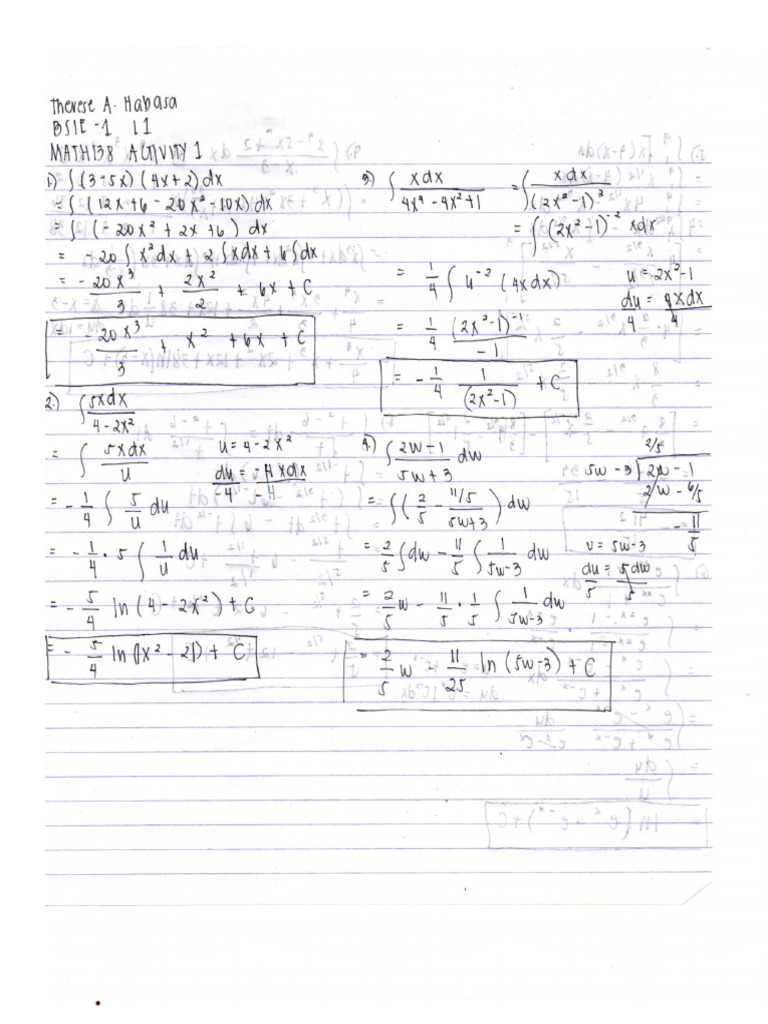 Therese A. Habasa
BSIE -1 L1
MATH138 ACTIVITY 1
1.) ∫(3-5x)(4x+2)dx
= ∫(12x+6-20x²-10x)dx
= ∫(-20x²+2x+6)dx
= -20∫x²dx+2∫xdx+6∫dx
= -20x³/3 + 2x²/2 + 6x + C
= -20x³/3 + x² + 6x + C
2.) ∫5xdx/4-2x²
= ∫5xdx/u u=4-2x²
du/-4 = -4xdx/-4
= -1/4 ∫5/u du
= -1/4 · 5 ∫1/u du
= -5/4 ln(4-2x²)+C
= -5/4 ln(|x²-2|)+C
3.) ∫xdx/4x⁴-4x²+1 = ∫xdx/(2x²-1)²
= ∫(2x²-1)⁻² xdx
= 1/4 ∫u⁻²(4xdx) u=2x²-1
du/4 = 4xdx/4
= 1/4 (2x²-1)⁻¹/-1
= -1/4 1/(2x²-1) + C
4.) ∫2w-1/5w+3 dw
2/5
5w-3 2w-1
2w-6/5
-11/5
= ∫(2/5 - 11/5/5w+3)dw
= 2/5∫dw-11/5∫1/5w-3 dw
v=5w-3
du/5 = 5dw/5
= 2/5w-11/5·1/5∫1/5w-3 dw
= 2/5 w 11/25 ln(5w-3)+C